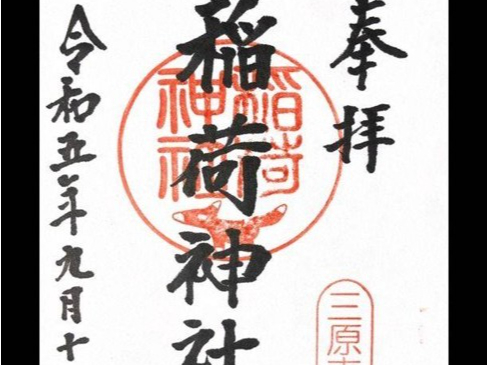 奉拝
稲荷神社
稲荷
神社
三原
令和五年九月十